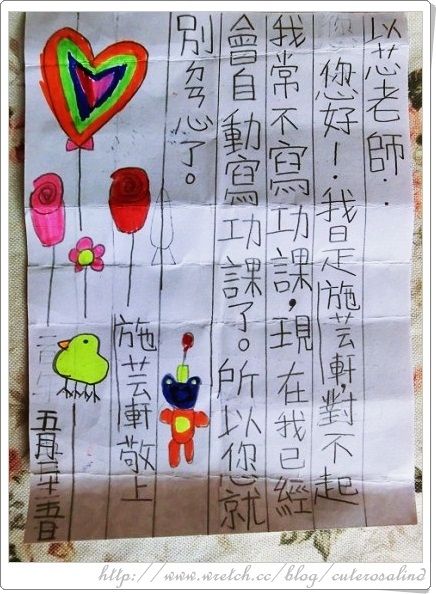 以芯老師：
您好！我是施芸軒，對不起
我常不寫功課，現在我已經
會自動寫功課了。所以您就
別ㄉㄢ心了。
施芸軒敬上
五月二十五日
http://www.wretch.cc/blog/cuterosalind